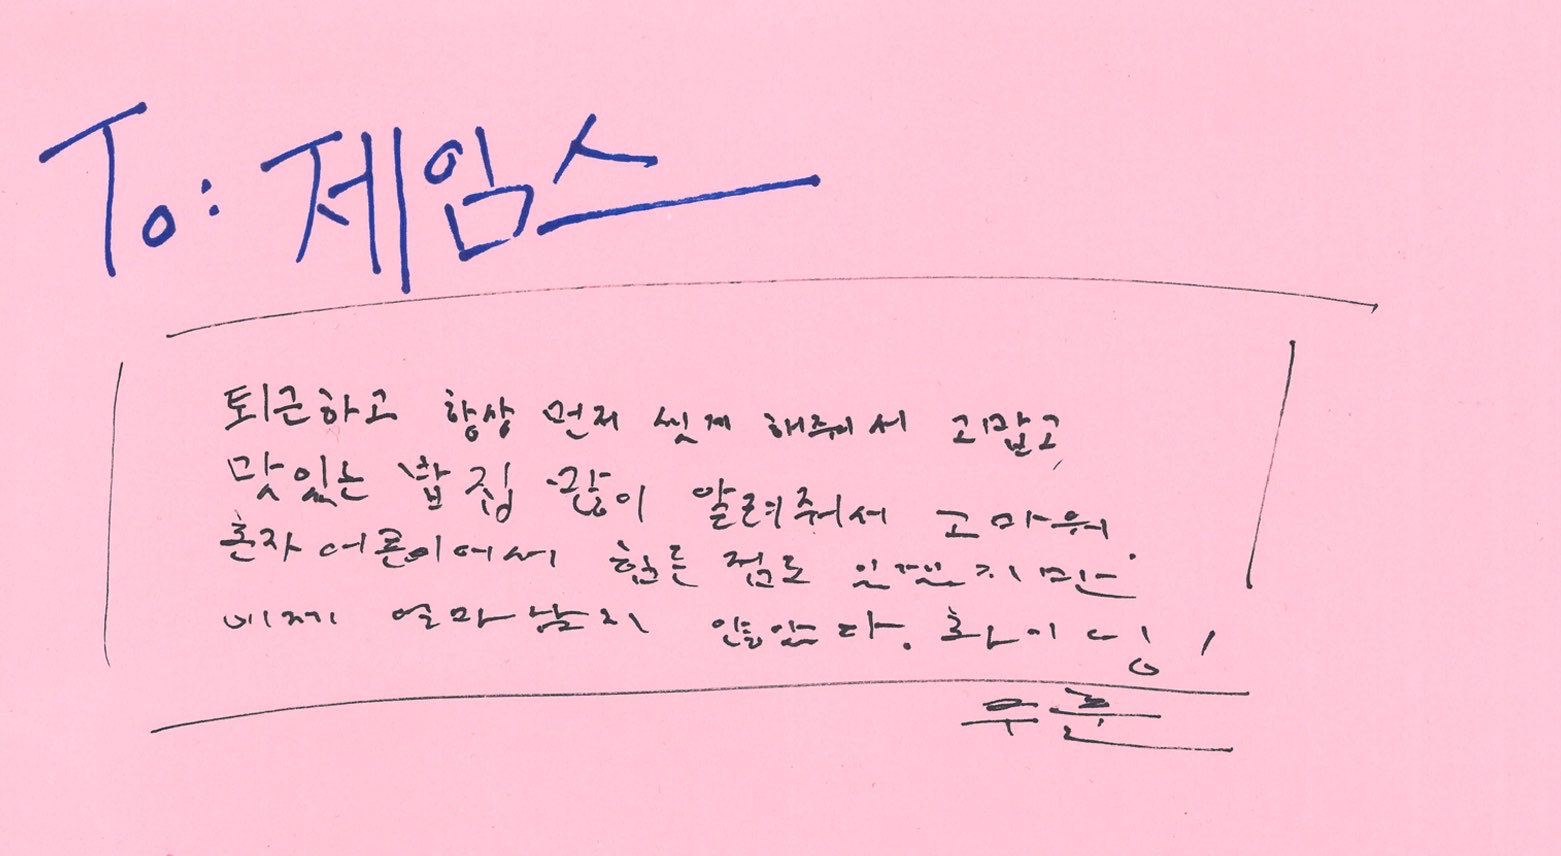 To: 제임스
퇴근하고 항상 먼저 씻게 해줘서 고맙고
맛있는 밥집 많이 알려줘서 고마워.
혼자 어른이어서 힘든 점도 있겠지만
이제 얼마남지 않았다. 화이팅!